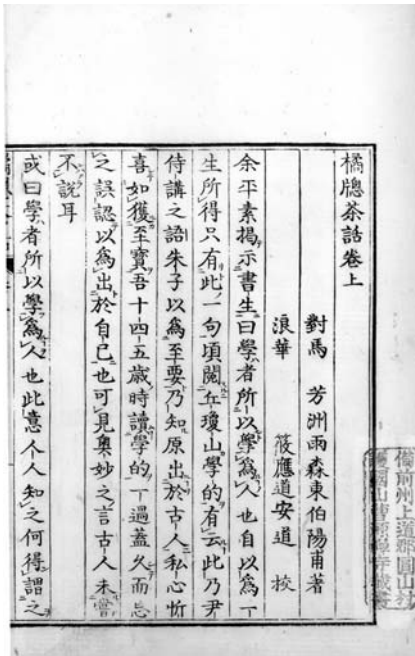 橘牕茶話卷上
對馬 芳洲雨森東伯陽甫著
浪華 筱應道安道 校
余平素揭示書生曰學者所以學爲人也自以爲一
生所得只有此一句頃閱丘瓊山學的有云此乃尹
侍講之語朱子以爲至要乃知原出於古人私心忻
喜如獲至寶吾十四五歲時讀學的一過蓋久而忘
之誤認以爲出於自己也可見奧妙之言古人未嘗
不說耳
或曰學者所以學爲人也此意人人知之何得謂之
備前州上道郡圓山村
護國山曹源禪寺藏書